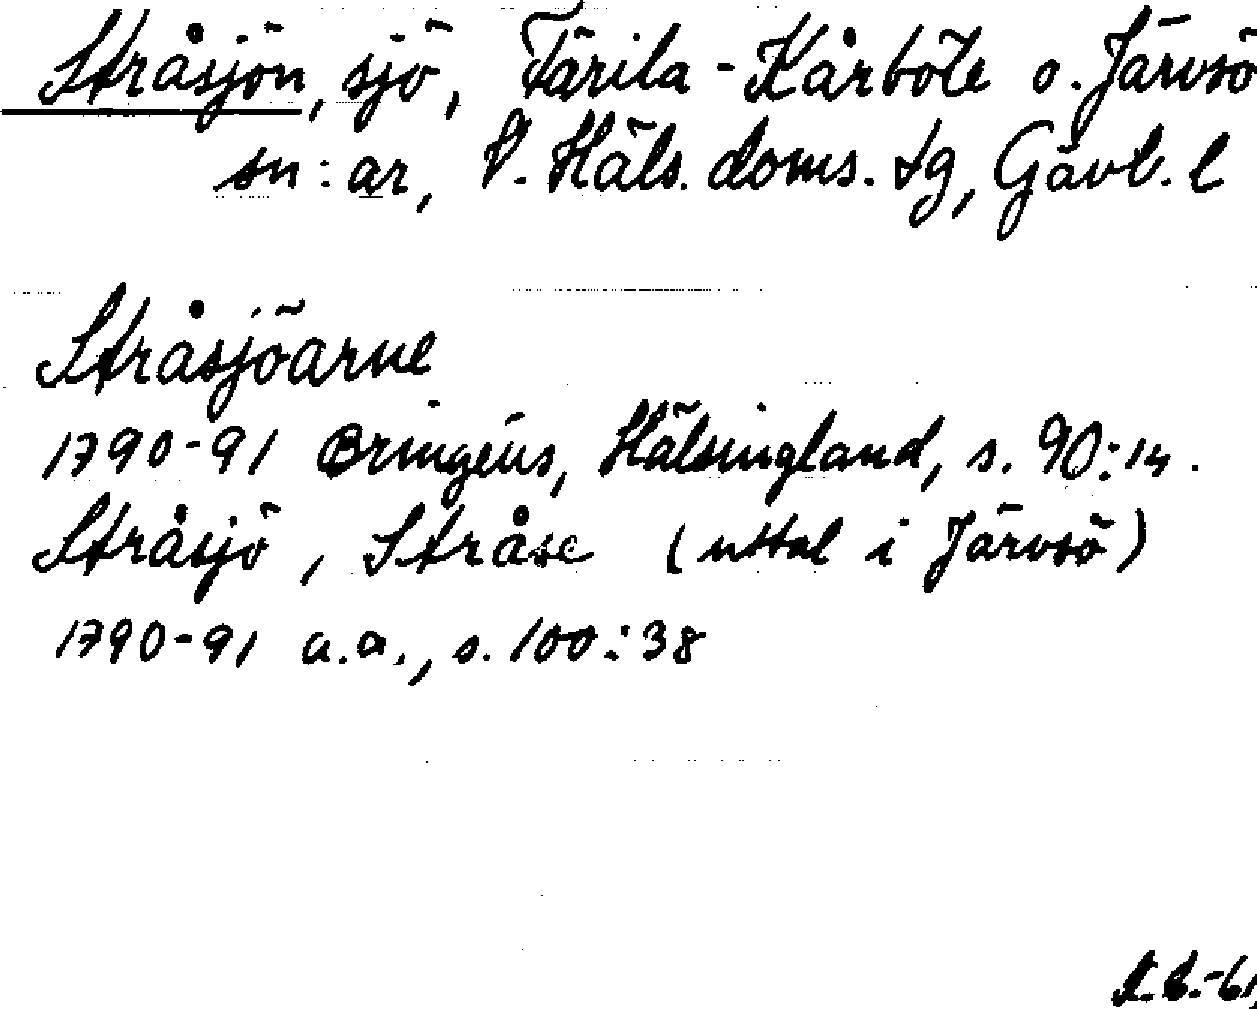 Stråsjön, sjö, Färila-Kårböle o. Järvsö
sn:ar, V. Häls. doms. tg, Gävl. l
Stråsjöarne
1790-91 Bringéus, Hälsingland, s. 90:14.
Stråsjö, Stråse (uttal i Järvsö)
1790-91 a.a., s. 100:38